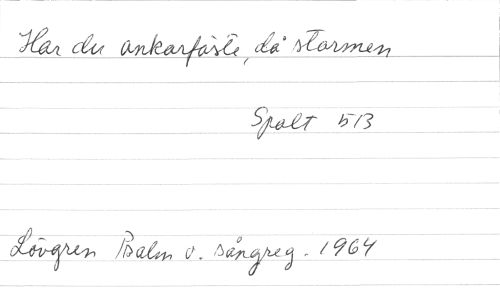 Har du ankarfäste, då stormen
Spalt 513
Lövgren Psalm o. sångreg. 1964